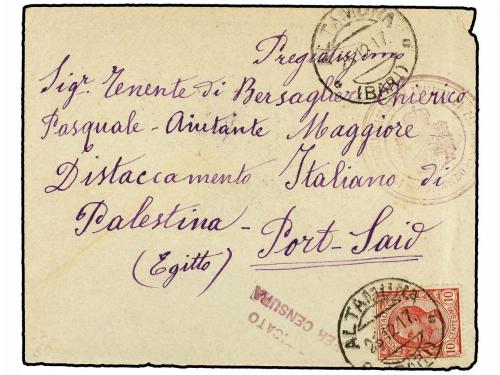 ALTAMURA
12.17.
(BARI)
Pregiatissimo
Sigr. Tenente di Bersaglieri Chierico
Pasquale - Aiutante Maggiore
Distaccamento Italiano di
Palestina - Port-Said
(Egitto)
PER CENSURA
ALTAMURA
10
10